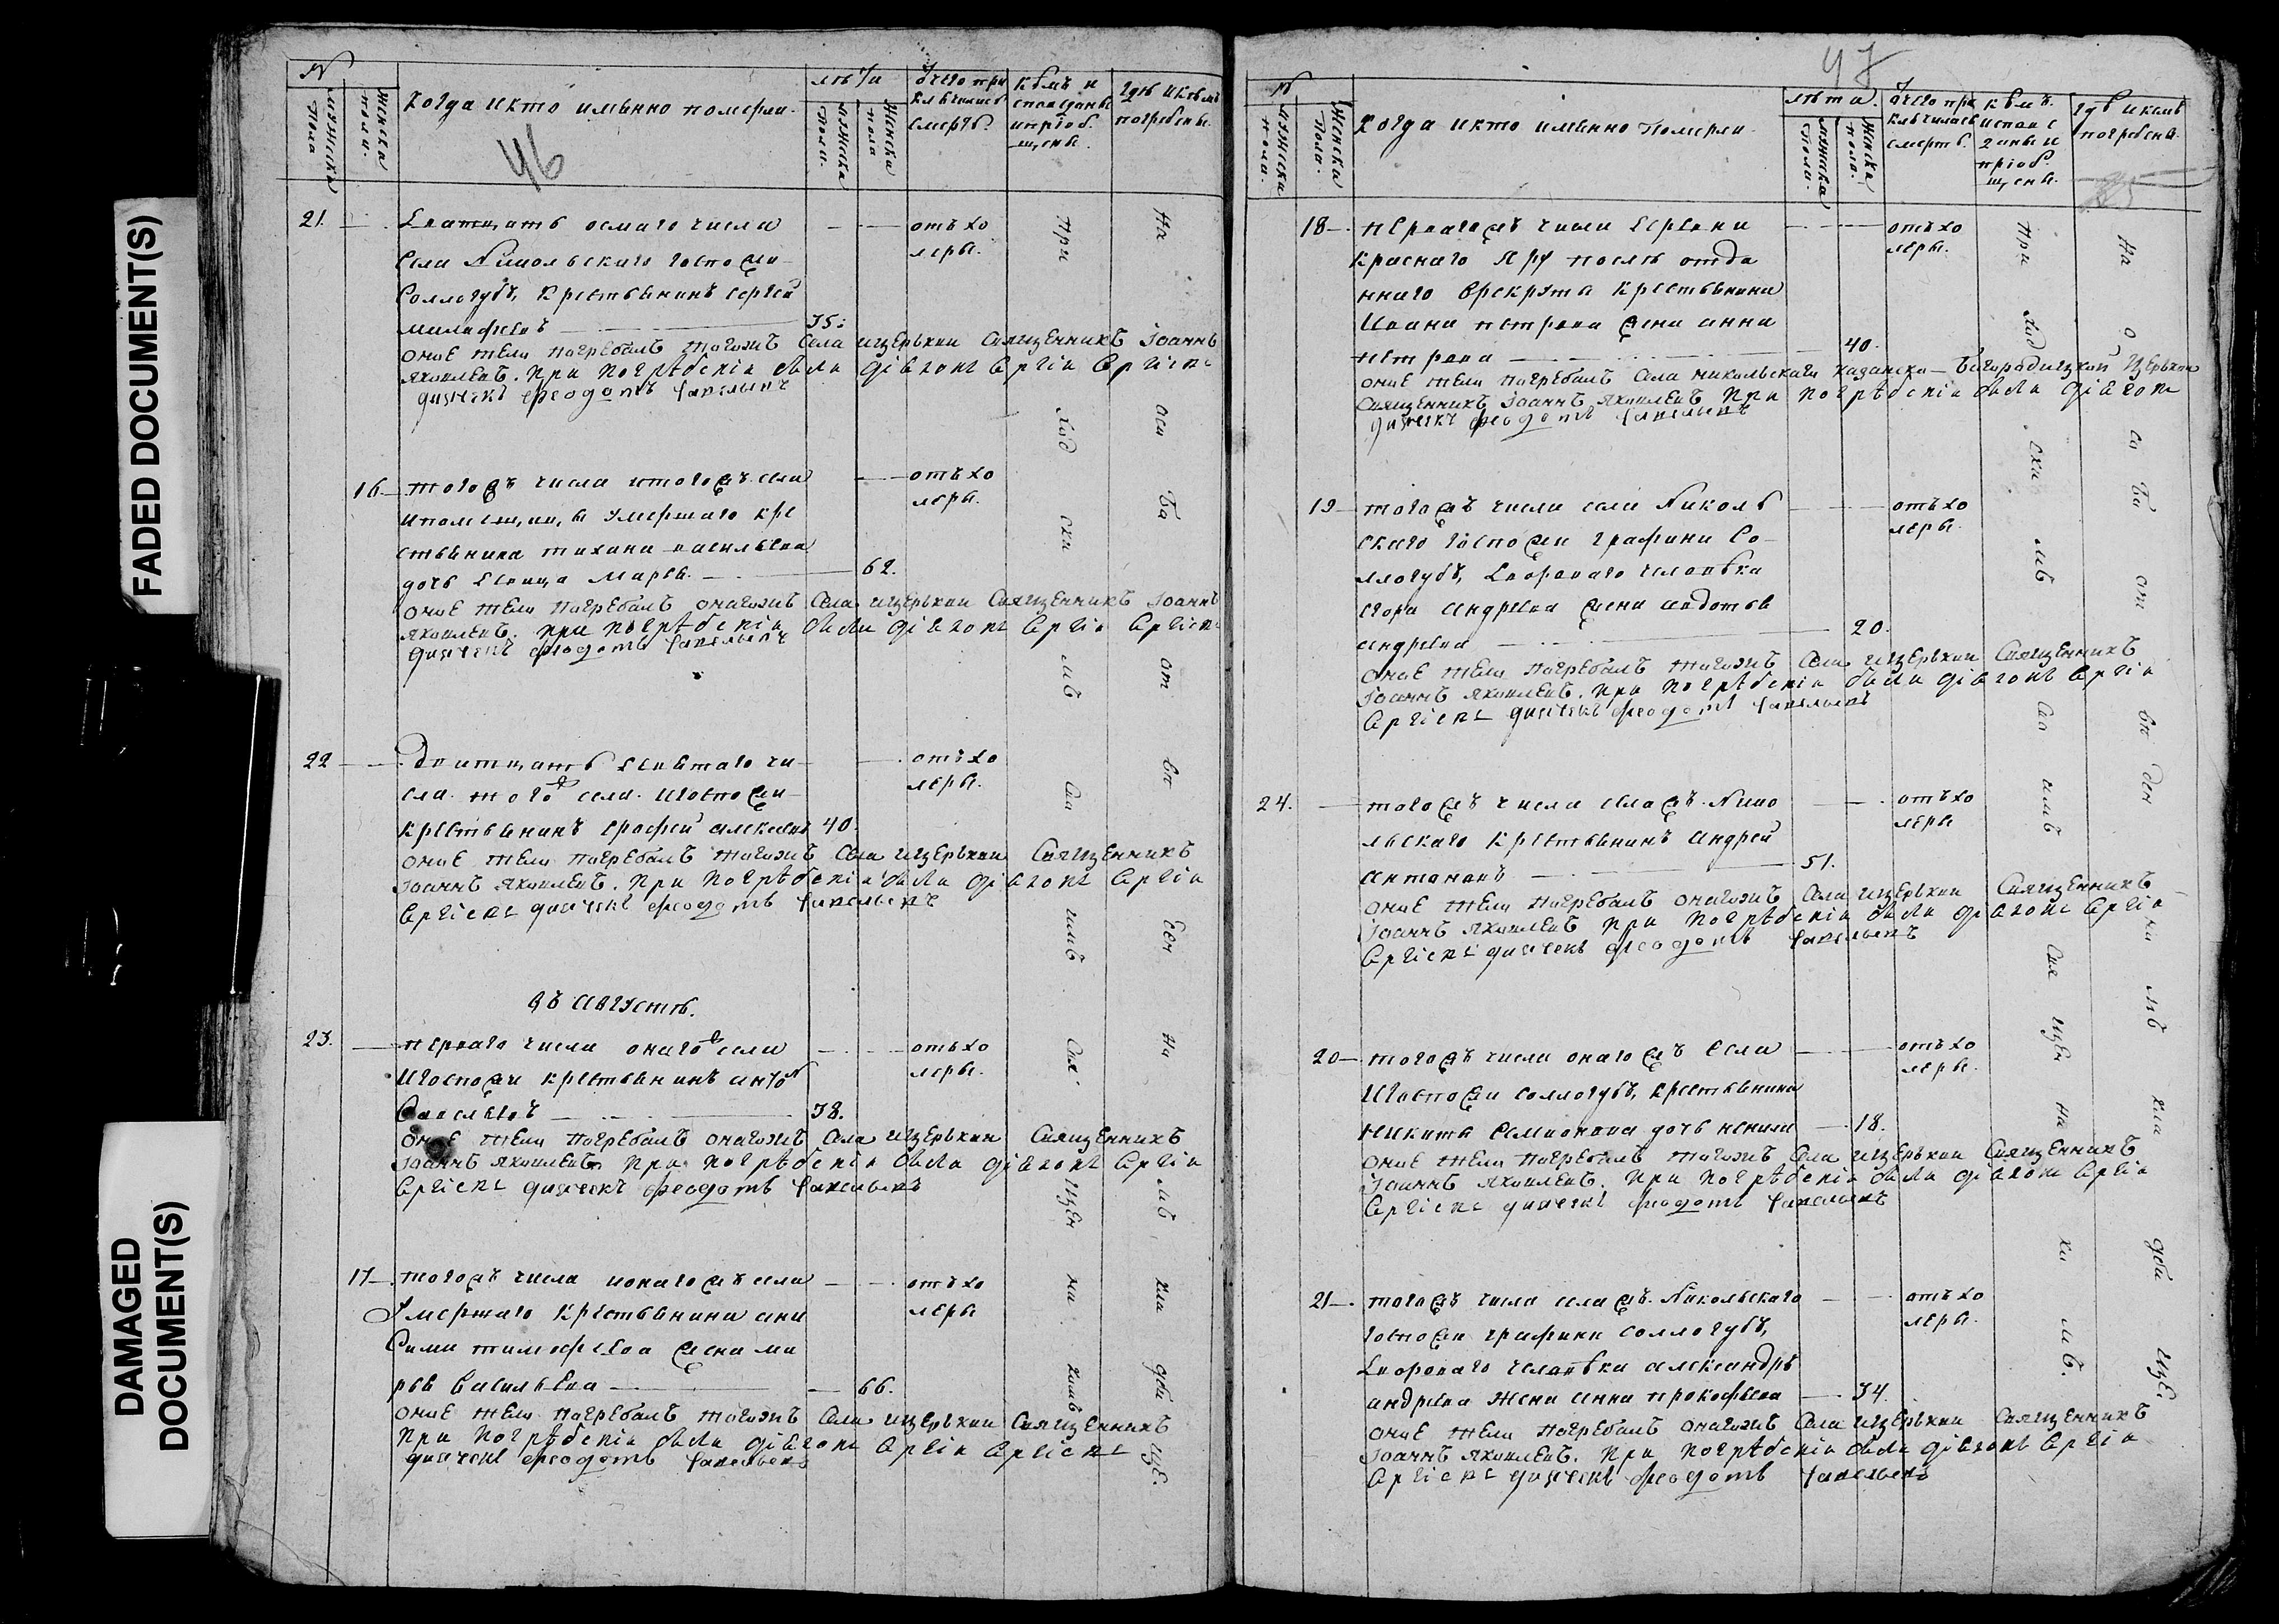 FADED DOCUMENT(S)
DAMAGED
DOCUMENT(S)
№
мужеска пола
Женска пола
Когда и кто имянно померли.
лѣта
мужеска пола
Женска пола
отчего приключилась смерть.
кѣмъ исповеданы и приобщены.
гдѣ и кѣмъ погребены.
46
21.
Дватцать осмаго числа
Села Никольскаго Госпожи
Соллогубъ, крестьянинъ Сергей
35.
отъ хо
леры.
оное тело погребалъ тогожъ Села церькви Священникъ Іоаннъ
Яковлевъ. при погрѣбеніи были діаконъ Сергіи Сергіевъ
дьячекъ Феодотъ Савельевъ
16
тогожъ числа и тогожъ села
и помещицы умершаго кре
стьянина Тихона Васильева
дочь девица Марья.
62.
отъ хо
леры.
оное тело погребалъ онагожъ Села церькви Священникъ Іоаннъ
Яковлевъ. при погрѣбеніи были діаконъ Сергіи Сергіевъ
дьячекъ Феодотъ Савельевъ
22
Дватцать девятаго чи
сла. тогожъ села. и Госпожи
крестьянинъ Ерофей Алексеевъ 40.
отъ хо
леры.
оное тело погребалъ тогожъ Села церькви Священникъ
Іоаннъ Яковлевъ. при погрѣбеніи были діаконъ Сергіи
Сергіевъ дьячекъ Феодотъ Савельевъ
въ Августѣ.
23.
перваго числа онагожъ села
и Госпожи крестьянинъ Антонъ
Савельевъ
38.
отъ хо
леры.
оное тело погребалъ онагожъ Села церькви Священникъ
Іоаннъ Яковлевъ при погрѣбеніи были діаконъ Сергіи
Сергіевъ дьячекъ Феодотъ Савельевъ
17
тогожъ числа и онагожъ села
Умершаго крестьянина Ани
Сима Тимофеева жена Ма
рья Васильева
66.
отъ хо
леры
оное тело погребалъ тогожъ Села церькви Священникъ
при погрѣбеніи были діаконъ Сергіи Сергіевъ
дьячекъ Феодотъ Савельевъ
Приходскимъ Священникомъ
На
47
№
мужеска пола.
Женска пола.
Когда и кто имянно Померли.
лѣта.
мужеска пола.
Женска пола.
отчего приключилась смерть.
кѣмъ исповеданы и приобщены.
гдѣ и кѣмъ погребены.
18
перваго жъ числа деревни
Краснаго Яру после отда
ннаго в рекруты крестьянина
Ивана Петрова жена Анна
Петрова
40.
отъ хо
леры.
оное тело погребалъ Села Никольскаго Казанско-Богородицкой церькви
Священникъ Іоаннъ Яковлевъ при погрѣбеніи были діаконъ
дьячекъ Феодотъ Савельевъ
19
тогожъ числа села Николь
скаго Госпожи графини Со
ллогубъ, двороваго человѣка
Егора Андреева жена Авдотья
Андреева
20.
отъ хо
леры.
оное тело погребалъ тогожъ Села церькви Священникъ
Іоаннъ Яковлевъ. при погрѣбеніи были діаконъ Сергіи
Сергіевъ дьячекъ Феодотъ Савельевъ
24.
тогожъ числа села жъ Нико
льскаго крестьянинъ Андрей
Антоновъ
51.
отъ хо
леры
оное тело погребалъ онагожъ Села церькви Священникъ
Іоаннъ Яковлевъ при погрѣбеніи были діаконъ Сергіи
Сергіевъ дьячекъ Феодотъ Савельевъ
20
тогожъ числа онагожъ Села
и Госпожи Соллогубъ, крестьянина
Никиты Семионова дочь
18.
отъ хо
леры.
оное тело погребалъ тогожъ Села церькви Священникъ
Іоаннъ Яковлевъ. при погрѣбеніи были діаконъ Сергіи
Сергіевъ дьячекъ Феодотъ Савельевъ
21
тогожъ числа села жъ Никольскаго
Госпожи графини Соллогубъ,
двороваго человѣка Александры
Андреева жена Анна Прокофьева
34.
отъ хо
леры.
оное тело погребалъ онагожъ Села церькви Священникъ
Іоаннъ Яковлевъ. при погрѣбеніи были діаконъ Сергіи
Сергіевъ дьячекъ Феодотъ Савельевъ